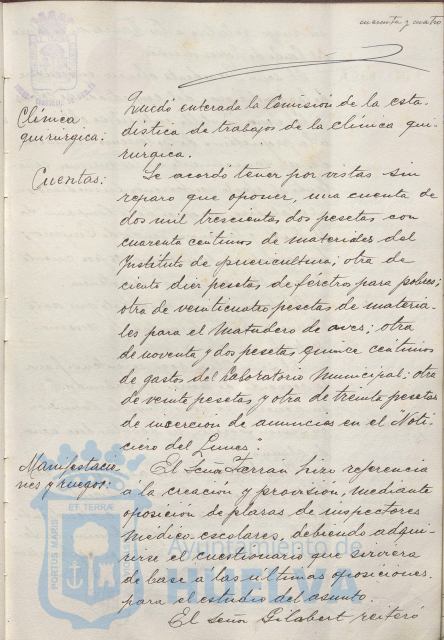 cuarenta y cuatro
Clínica
quirúrgica:
Quedó enterada la Comisión de la esta-
dística de trabajos de la clínica qui-
rúrgica.
Cuentas:
Se acordó tener por vistas sin
reparo que oponer, una cuenta de
dos mil trescientas dos pesetas con
cuarenta céntimos de materiales del
Instituto de puericultura; otra de
ciento diez pesetas de féretros para pobres;
otra de veinticuatro pesetas de materia-
les para el Matadero de aves; otra
de noventa y dos pesetas quince céntimos
de gastos del Laboratorio Municipal; otra
de veinte pesetas y otra de treinta pesetas
de inserción de anuncios en el "Noti-
ciero del Lunes".
Manifestacio-
nes y ruegos:
El Señor Terrán hizo referencia
a la creación y provisión, mediante
oposición de plazas de inspectores
médico-escolares, debiendo adqui-
rirse el cuestionario que sirviera
de base a las últimas oposiciones,
para el estudio del asunto.
El señor Gilabert reiteró
PORTUS MARIS ET TERRAE
Ayuntamiento de
HUELVA